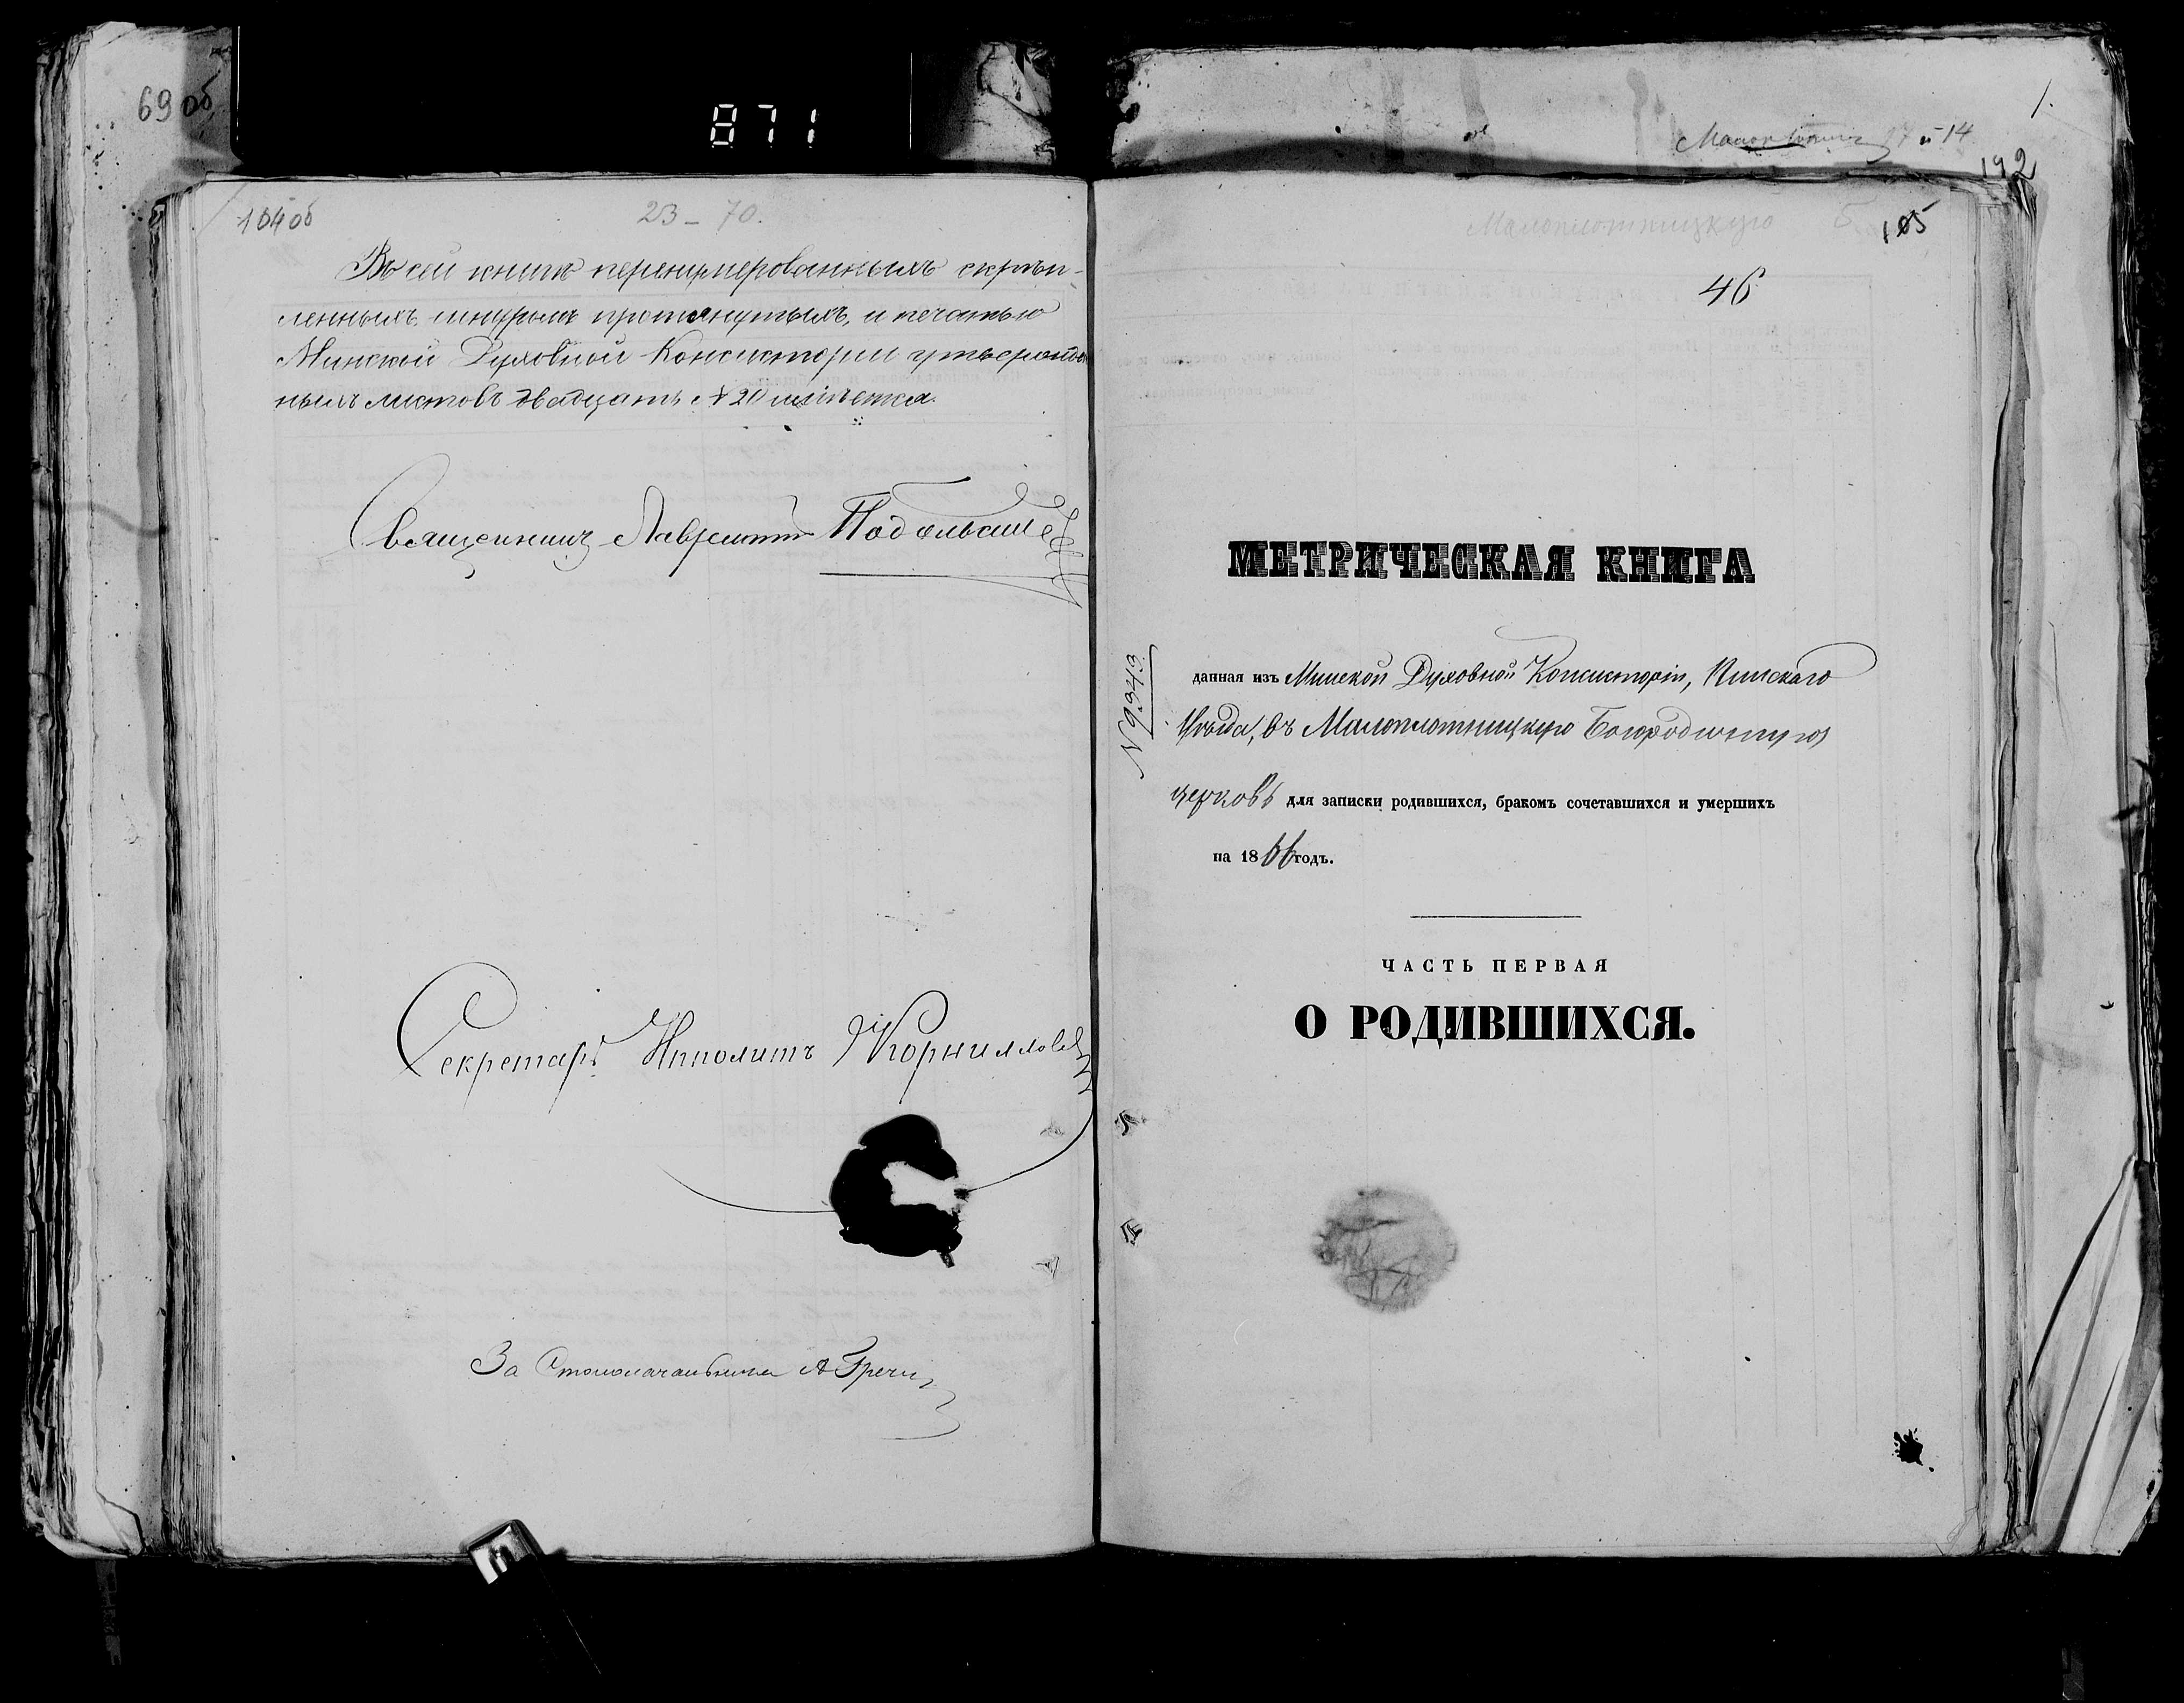 69 об
871
104 об
23 – 70.
Въ сей книгѣ перенумерованныхъ скрѣп-
ленныхъ шнуромъ протянутыхъ, и печатью
Минской Духовной Консисторіи утвержден
ныхъ листовъ двадцать № 20 имѣется.
Священникъ Лаврентій
Секретарь Ипполитъ Корниллов
За Столоначальника А Гречи
1.
17 и 14
192
Малоплотницкую Б
105
46
МЕТРИЧЕСКАЯ КНИГА
№ 9343
данная изъ Минской Духовной Консисторіи, Пинскаго
Уѣзда, въ Малоплотницкую Богородичную
церковь для записки родившихся, бракомъ сочетавшихся и умершихъ
на 1866 годъ.
ЧАСТЬ ПЕРВАЯ
О РОДИВШИХСЯ.